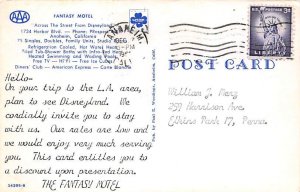 AAA
FANTASY MOTEL
Across The Street From Disneyland
1734 Harbor Blvd. - Phone:
Anaheim, California
Singles, Doubles, Family Units, Studio
Refrigeration Cooled, Hot Water Heat
Tiled Tub-Shower Baths with Infra-Red Heat
Heated Swimming and Wading Pools
Free TV - HiFi - Free Ice Cubes
Diners' Club - American Express - Carte Blanche
ANAHEIM
PM
1960
3¢
LIBERTY
POST CARD
Hello-
On your trip to the L.A. area,
plan to see Disneyland. We
cordially invite you to stay
with us. Our rates are low and
we would enjoy very much serving
you. This card entitles you to
a discount upon presentation.
THE FANTASY MOTEL
William J. Merz
959 Harrison Ave.
Elkins Park 17, Penna.